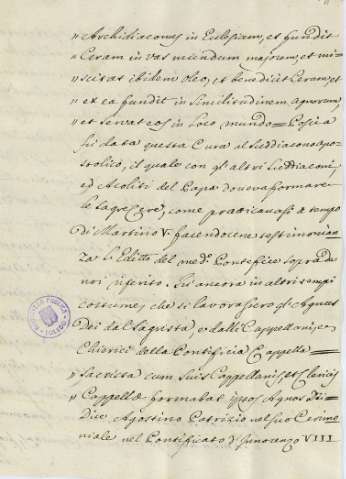 " Archidiaconus in Eclesiam, et fundit
" Ceram in vas mundum majorem, et mi-
" scitat ibidem oleo, et benedicit Ceram, et
" ex ea fundit in similitudinem agnorum,
" et servat eos in loco mundo = Posi a
fu data questa Cura al Suddiacono apos-
tolico, il quale con gl' altri Suddiaconi,
ed Acoliti del Papa doveva formare
le sagre Cere, come pratticavasi a tempo
di Martino V. facendocene testimonian-
za l' Editto del me.d.o Pontefice sopra da
noi riferito. Fu ancora in altri tempi
costume, che si lavorassero gl' Agnus
Dei dal Sagrista, e dalli Cappellani, e
Chierici della Pontificia Cappella =
" Sacrista cum suis Cappellanis, et Clericis
" Cappellæ formabat ipsos Agnos Dei =
dice Agostino Patrizio nel suo Cerimo-
niale nel Pontificato d' Innocenzo VIII